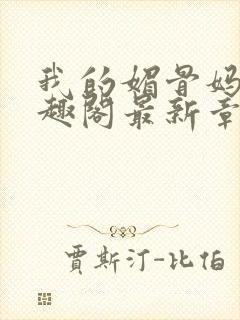 我的媚骨妈
趣阁最新章
贾斯汀-比伯